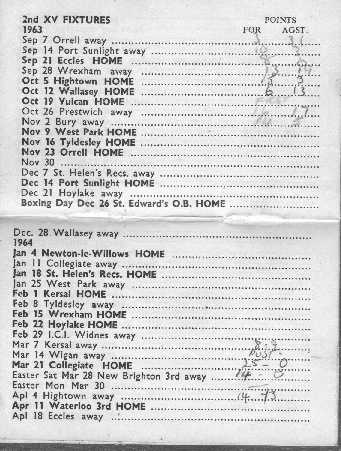 2nd XV FIXTURES POINTS
1963 FOR AGST.
Sep 7 Orrell away
Sep 14 Port Sunlight away
Sep 21 Eccles HOME
Sep 28 Wrexham away
Oct 5 Hightown HOME
Oct 12 Wallasey HOME 6 13
Oct 19 Vulcan HOME
Oct 26 Prestwich away
Nov 2 Bury away
Nov 9 West Park HOME
Nov 16 Tyldesley HOME
Nov 23 Orrell HOME
Nov 30
Dec 7 St. Helen's Recs. away
Dec 14 Port Sunlight HOME
Dec 21 Hoylake away
Boxing Day Dec 26 St. Edward's O.B. HOME
Dec. 28 Wallasey away
1964
Jan 4 Newton-le-Willows HOME
Jan 11 Collegiate away
Jan 18 St. Helen's Recs. HOME
Jan 25 West Park away
Feb 1 Kersal HOME
Feb 8 Tyldesley away
Feb 15 Wrexham HOME
Feb 22 Hoylake HOME
Feb 29 I.C.I. Widnes away
Mar 7 Kersal away
Mar 14 Wigan away
Mar 21 Collegiate HOME 25 0
Easter Sat Mar 28 New Brighton 3rd away 14
Easter Mon Mar 30
Apl 4 Hightown away 14 13
Apr 11 Waterloo 3rd HOME
Apl 18 Eccles away